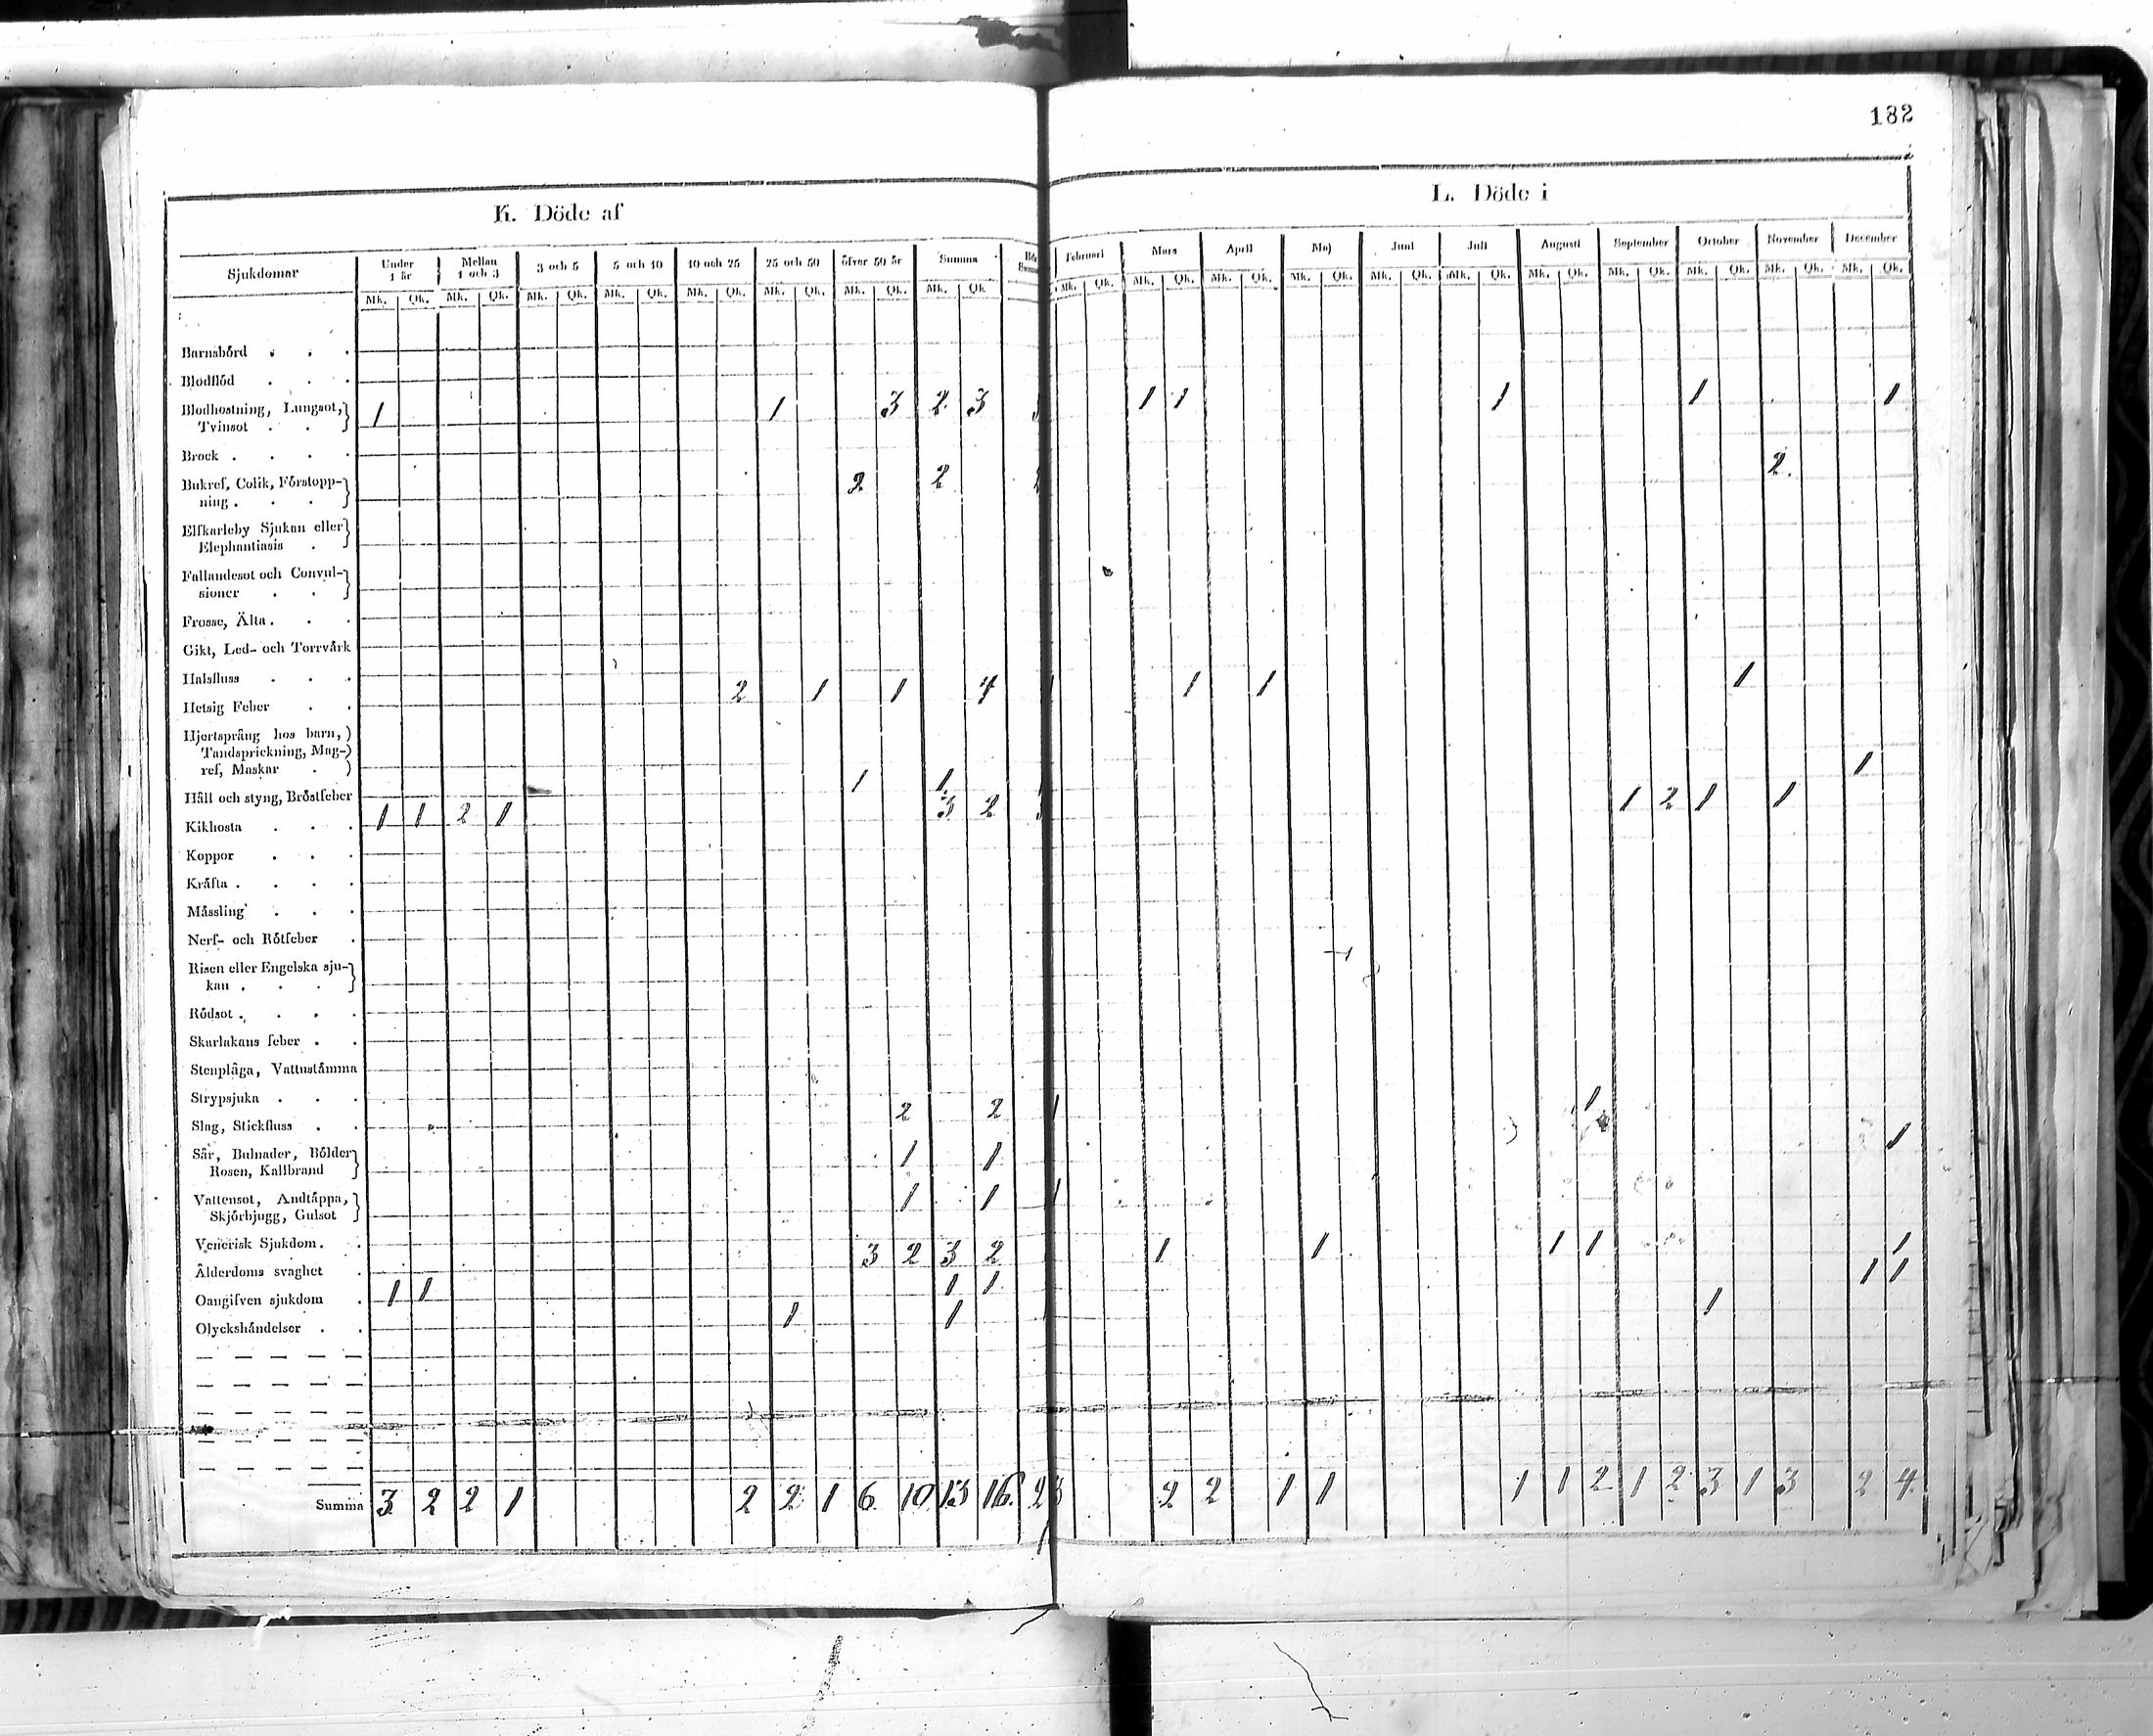 182
K. Döde af
L. Döde i
Sjukdomar Under 1 år Mellan 1 och 3 3 och 5 5 och 10 10 och 25 25 och 50 öfver 50 år Summa
Februari Mars April Maj Juni Juli Augusti September October November December
Mk. Qk. Mk. Qk. Mk. Qk. Mk. Qk. Mk. Qk. Mk. Qk. Mk. Qk. Mk. Qk
Mk. Qk. Mk. Qk. Mk. Qk. Mk. Qk. Mk. Qk. Mk. Qk. Mk. Qk. Mk. Qk. Mk. Qk. Mk. Qk. Mk. Qk.
Barnsbörd
Blodflöd
Blodhostning, Lungsot, 1 1 3 2 3 1 1 1 1 1
Tvinsot
Brock
Bukref, Colik, Förstopp- 2 2 2
ning
Elfkarleby Sjukan eller
Elephantiasis
Fallandesot och Convul-
sioner
Frosse, Älta
Gikt, Led- och Torrvärk
Halsfluss
Hetsig Feber 2 1 1 4 1 1 1
Hjertsprång hos barn,
Tandsprickning, Mag-
ref, Maskar
Håll och styng, Bröstfeber 1 1 1
Kikhosta 1 1 2 1 3 2 1 2 1 1
Koppor
Kräfta
Mässling
Nerf- och Rötfeber
Risen eller Engelska sju-
kan
Rödsot
Skarlakans feber
Stenplåga, Vattustämma
Strypsjuka
Slag, Stickfluss 2 2 1 1
Sår, Bulnader, Bölder 1 1 1
Rosen, Kallbrand
Vattensot, Andtäppa, 1 1 1
Skjörbjugg, Gulsot
Venerisk Sjukdom
Ålderdoms svaghet 3 2 3 2 1 1 1 1 1
Oangifven sjukdom 1 1 1 1 1 1
Olyckshändelser 1 1 1
Summa 3 2 2 1 2 2 1 6 10 13 16 2 2 1 1 1 1 2 1 2 3 1 3 2 4